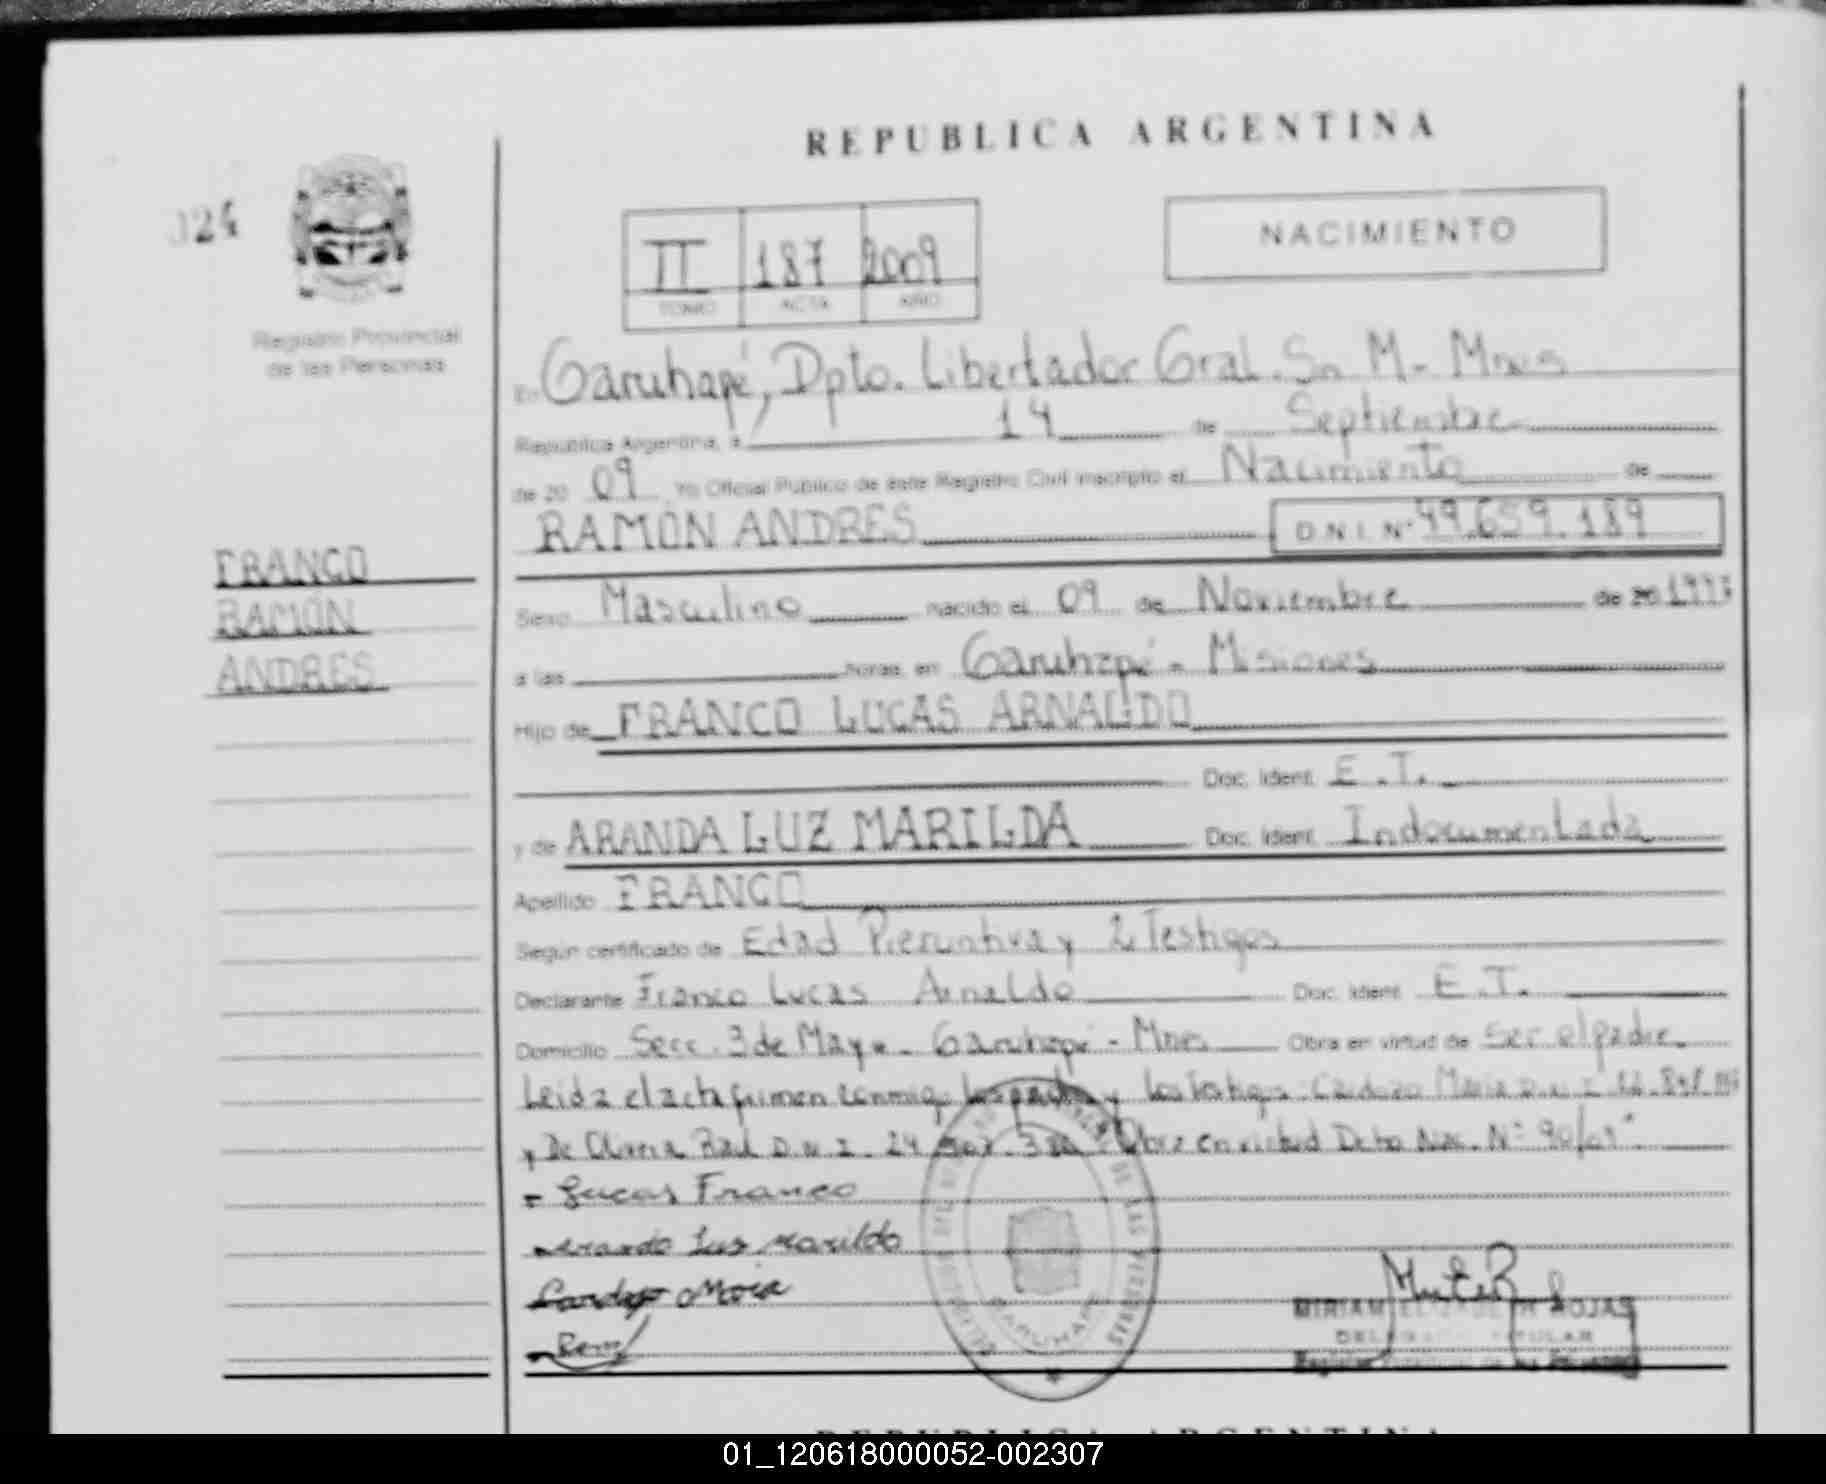 REPUBLICA ARGENTINA
024
NACIMIENTO
II 187 2009
TOMO ACTA AÑO
Registro Provincial
de las Personas
En Garuhapé, Dpto. Libertador Gral. Sn M. - Mnes
Republica Argentina, a 14 de Septiembre
de 20 09 Yo Oficial Publico de este Registro Civil inscripto el Nacimiento de
RAMÓN ANDRES D.N.I. Nº 49.659.189
FRANCO
RAMÓN
ANDRES
Sexo Masculino nacido el 09 de Noviembre de 20
a las horas, en Garuhapé - Misiones
Hijo de FRANCO LUCAS ARNALDO
Doc. Ident. E.T.
y de ARANDA LUZ MARILDA Doc. Ident. Indocumentada
Apellido FRANCO
Según certificado de Edad Presuntiva y 2 Testigos
Declarante Franco Lucas Arnaldo Doc. Ident. E.T.
Domicilio Secc. 3 de Mayo - Garuhapé - Mnes Obra en virtud de Ser el padre.
Leida el acta firman conmigo los padres y los testigos: Cardozo Maria D.N.I.
y De Olivera Raul D.N.I. 24. Obra en virtud Dcto Nac. Nº 90/09".
- Lucas Franco
- Aranda Luz Marilda
Cardozo Maria
GARUHAPE
MIRIAM ELIZABETH ROJAS
DELEGADA TITULAR
Registro Provincial de las Personas
REPUBLICA ARGENTINA
01_120618000052-002307